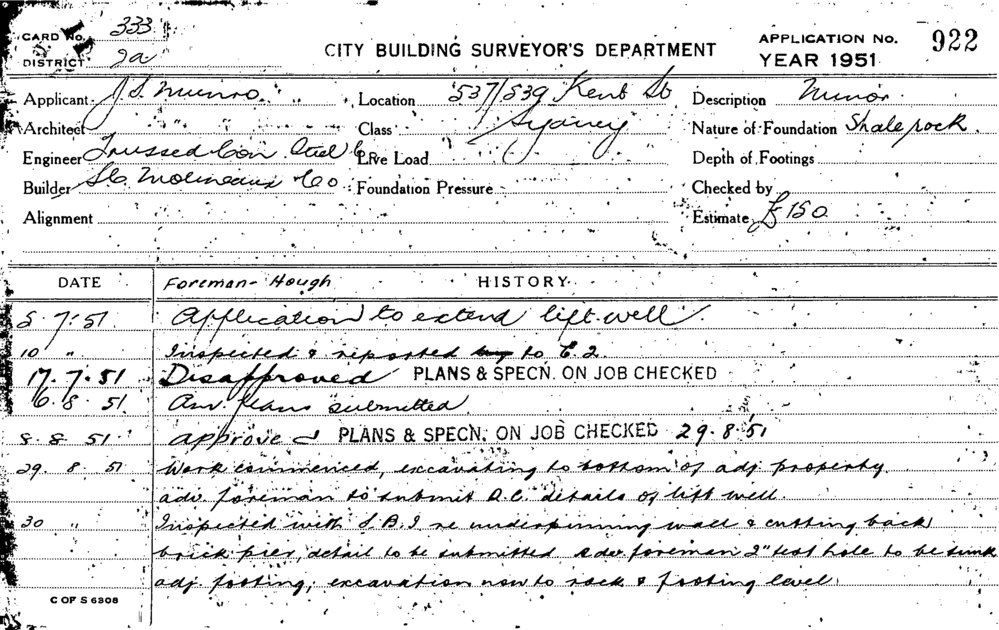 CARD No. 333
DISTRICT 2a
CITY BUILDING SURVEYOR'S DEPARTMENT
APPLICATION No. 922
YEAR 1951
Applicant J. S. Munro Location 537/539 Kent St Description Minor
Architect " " " Class Sydney Nature of Foundation Shale rock
Engineer Trussed Con Steel Co Live Load Depth of Footings
Builder Molineaux Co Foundation Pressure Checked by
Alignment Estimate £150
DATE Foreman - Hough HISTORY
5. 7. 51 Application to extend lift well
10 " Inspected & reported to C. 2.
17. 7. 51 Disapproved PLANS & SPECN. ON JOB CHECKED
6. 8. 51 Am. plans submitted
8. 8. 51 approved PLANS & SPECN. ON JOB CHECKED 29. 8. 51
29. 8. 51 Work commenced, excavating to bottom of adj property
adv. foreman to submit R.C. details of lift well.
30 " Inspected with S.B.I. re underpinning wall & cutting back
brick pier, detail to be submitted adv. foreman 2" test hole to be sunk
adj. footing, excavation now to rock & footing level
C OF S 6308